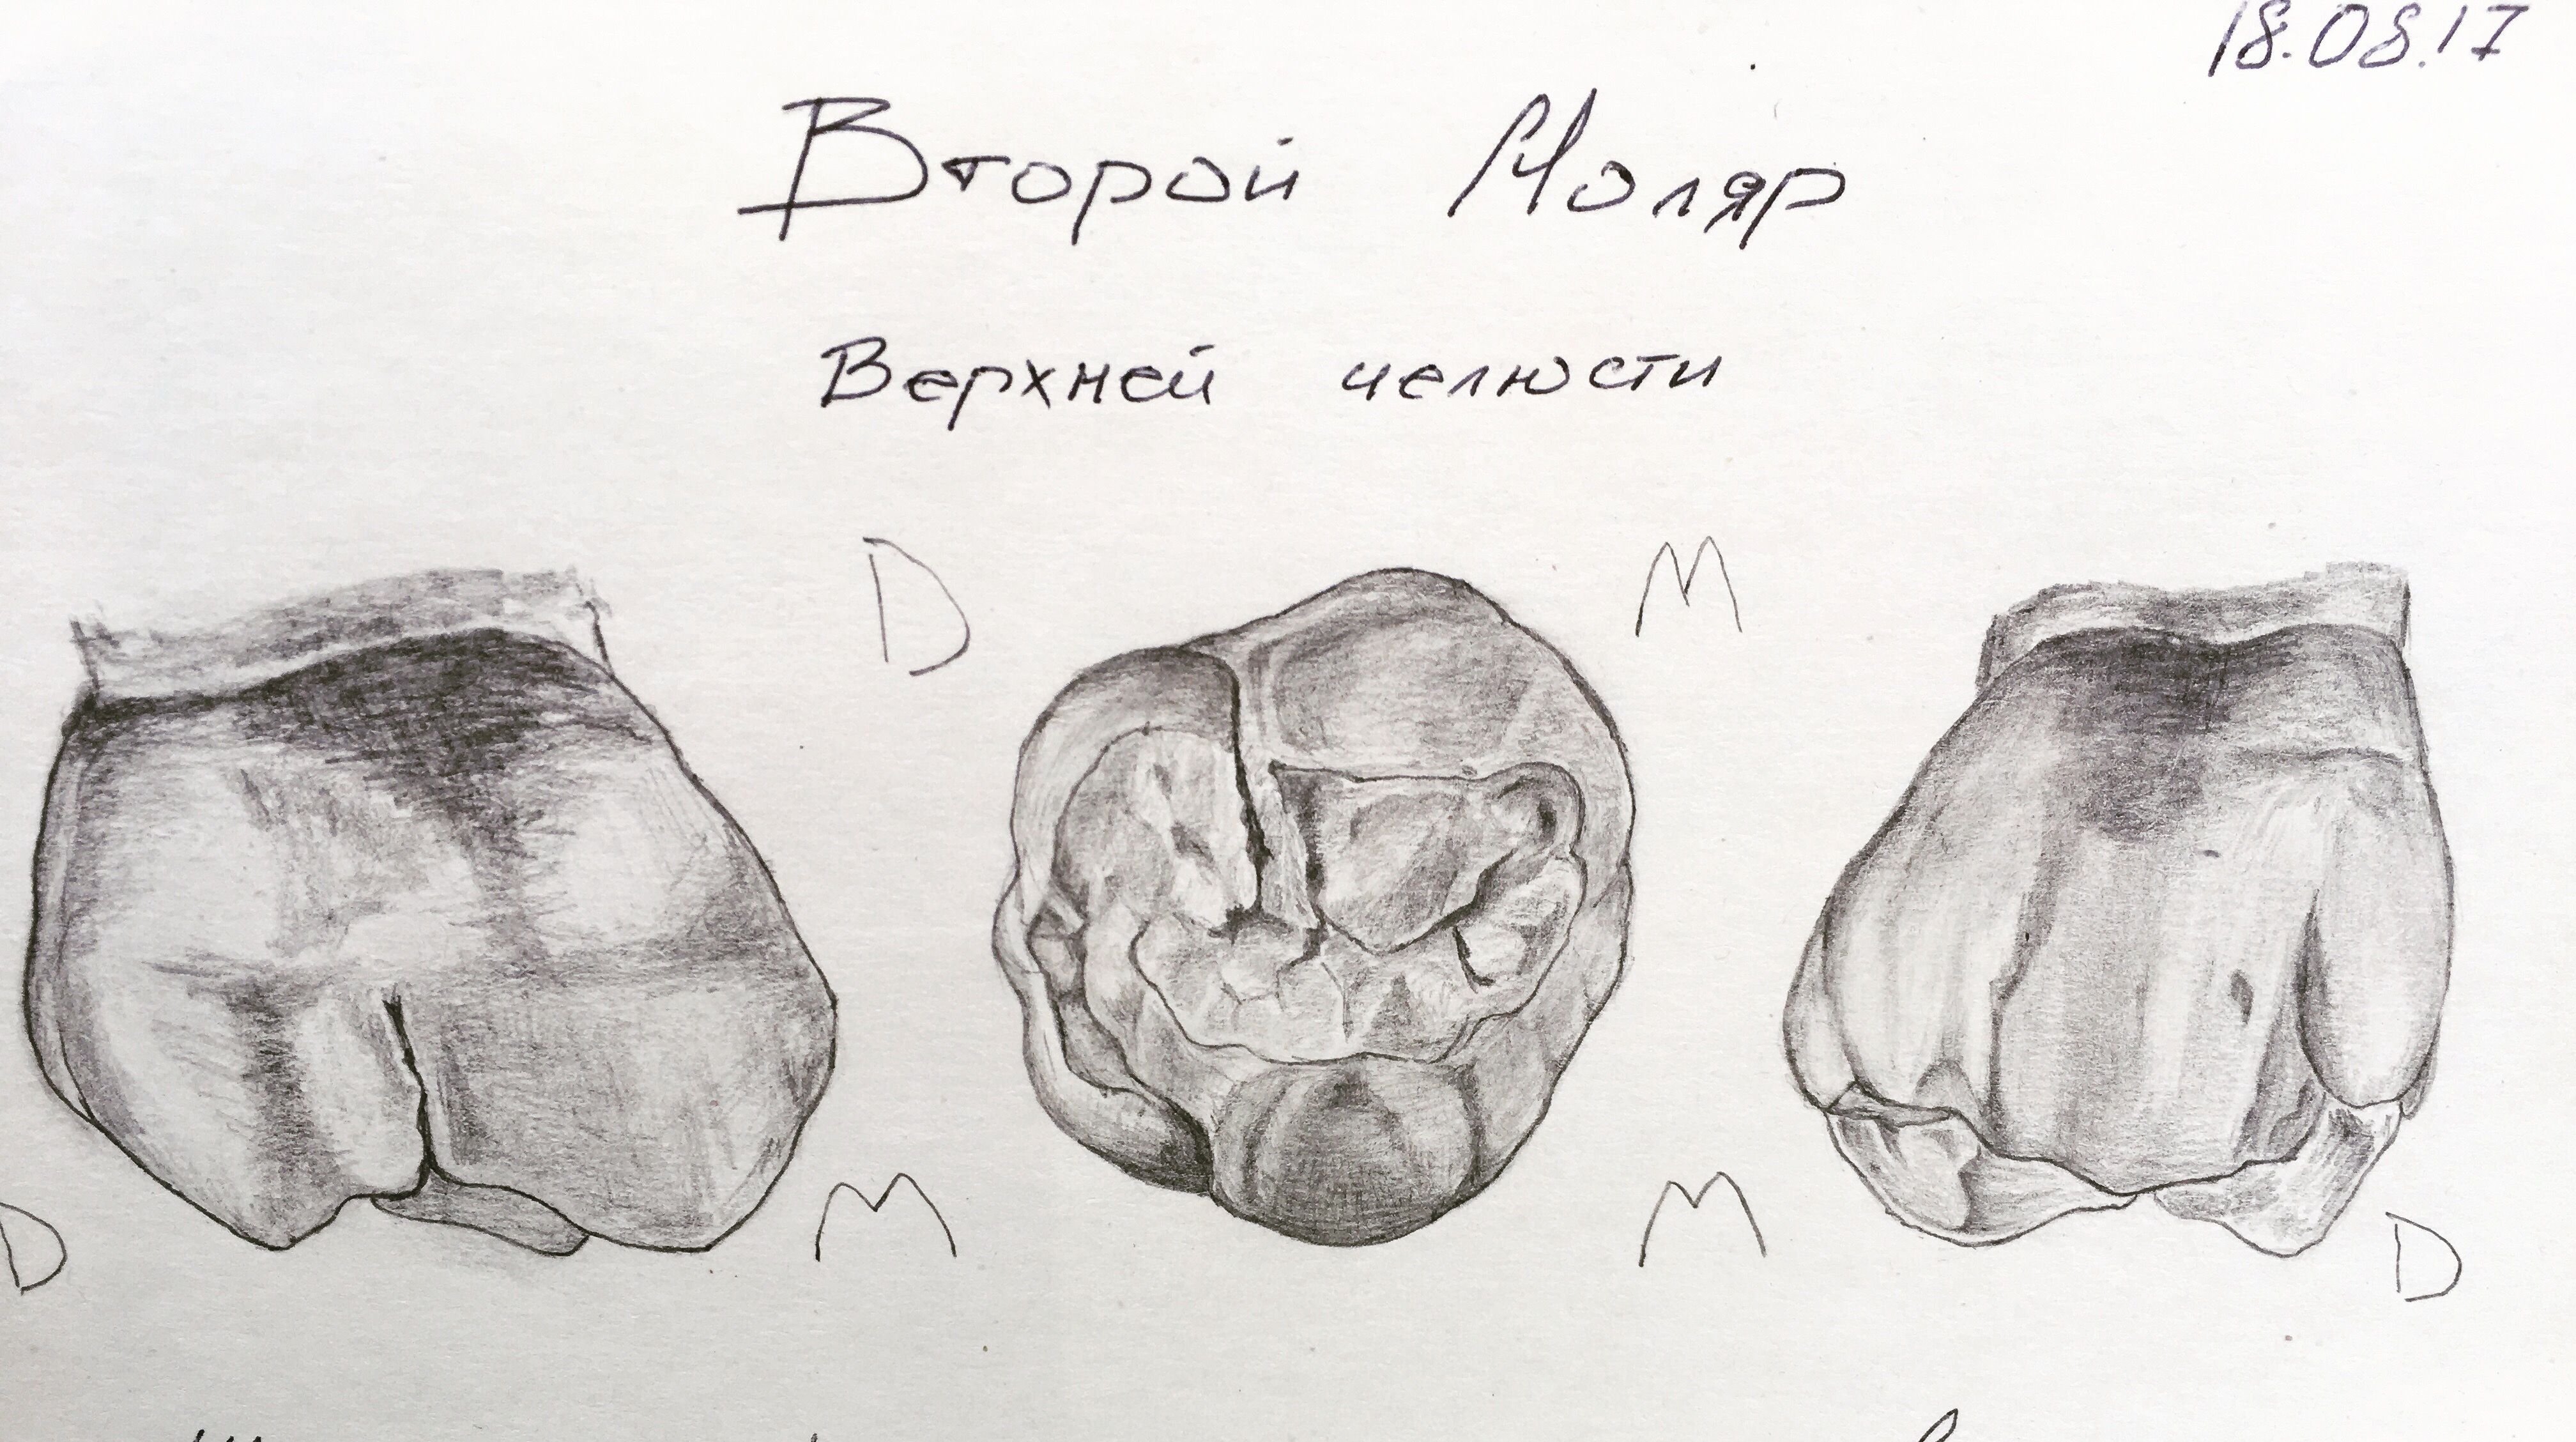 18.08.17
Второй Моляр
Верхней челюсти
D M
D M M D